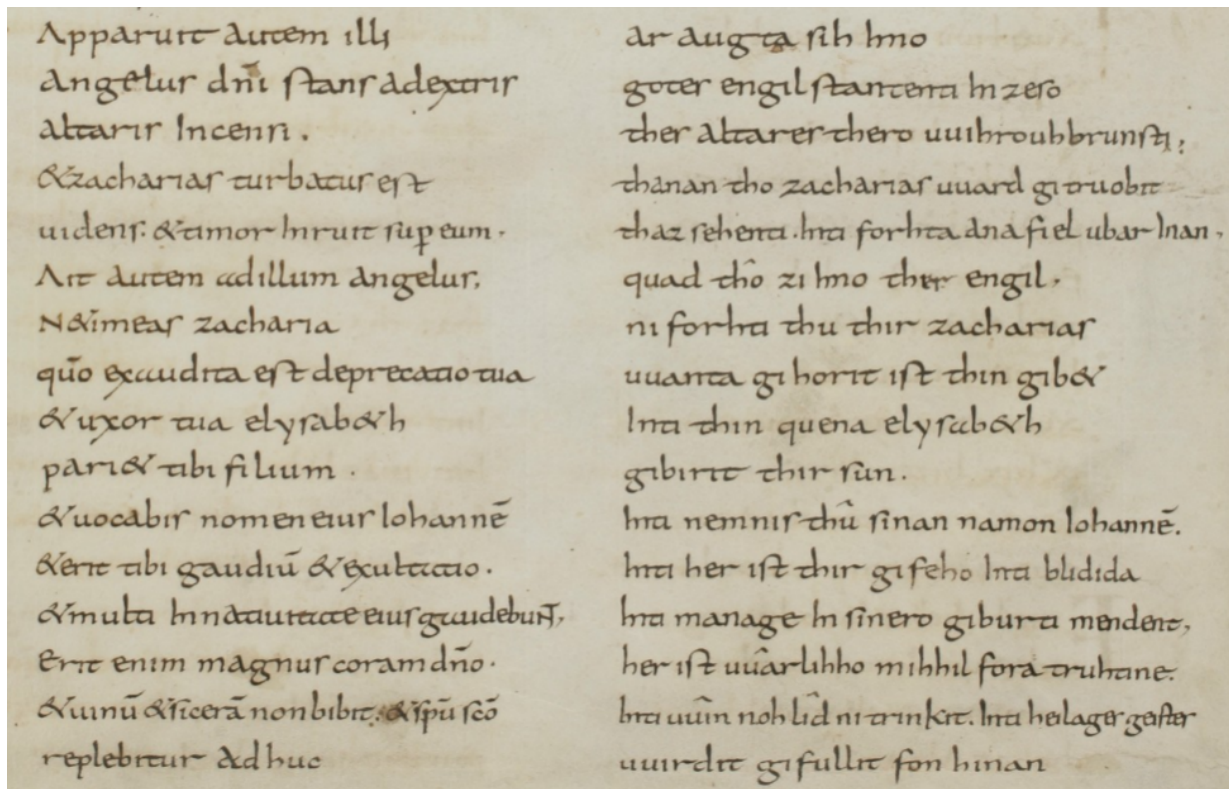 Apparuit autem illi
angelus dn̄i stans adextris
altaris Incensi .
&zacharias turbatus est
uidens. &timor Inruit sup̄ eum.
Ait autem adillum angelus;
N&imeas zacharia
qūo exaudita est deprecatio tua
&uxor tua elysab&h
pari& tibi filium .
&uocabis nomen eius Iohannē
&erit tibi gaudiū &exultatio .
&multi Innatiuitate eius gaudebunt,
Erit enim magnus coram dn̄o .
&uinū &sicerā non bibit. &sp̄u sc̄o
replebitur adhuc
araugta sih Imo
gotes engil stantenti In zeso
thes altares thero uuihrouhbrunsti;
thanan tho zacharias uuard gitruobit
thaz sehenti. Inti forhta anafiel ubar Inan.
quad thô zi Imo ther engil.
ni forhti thu thir zacharias
uuanta gihorit ist thin gib&
Inti thin quena elysab&h
gibirit thir sun .
Inti nemnis thû sinan namon Iohannē.
Inti her ist thir gifeho Inti blidida
Inti manage In sinero giburti mendent,
her ist uuârlihho mihhil fora truhtine.
Inti uuîn noh lîd ni trinkit. Inti heilages geistes
uuirdit gifullit fon hinan